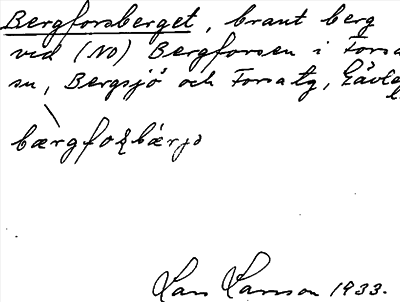 Bergforsberget, brant berg
vid (NO) Bergforsen i Forsa
sn, Bergsjö och Forsa tg, Gävle
Lars Larsson 1933.